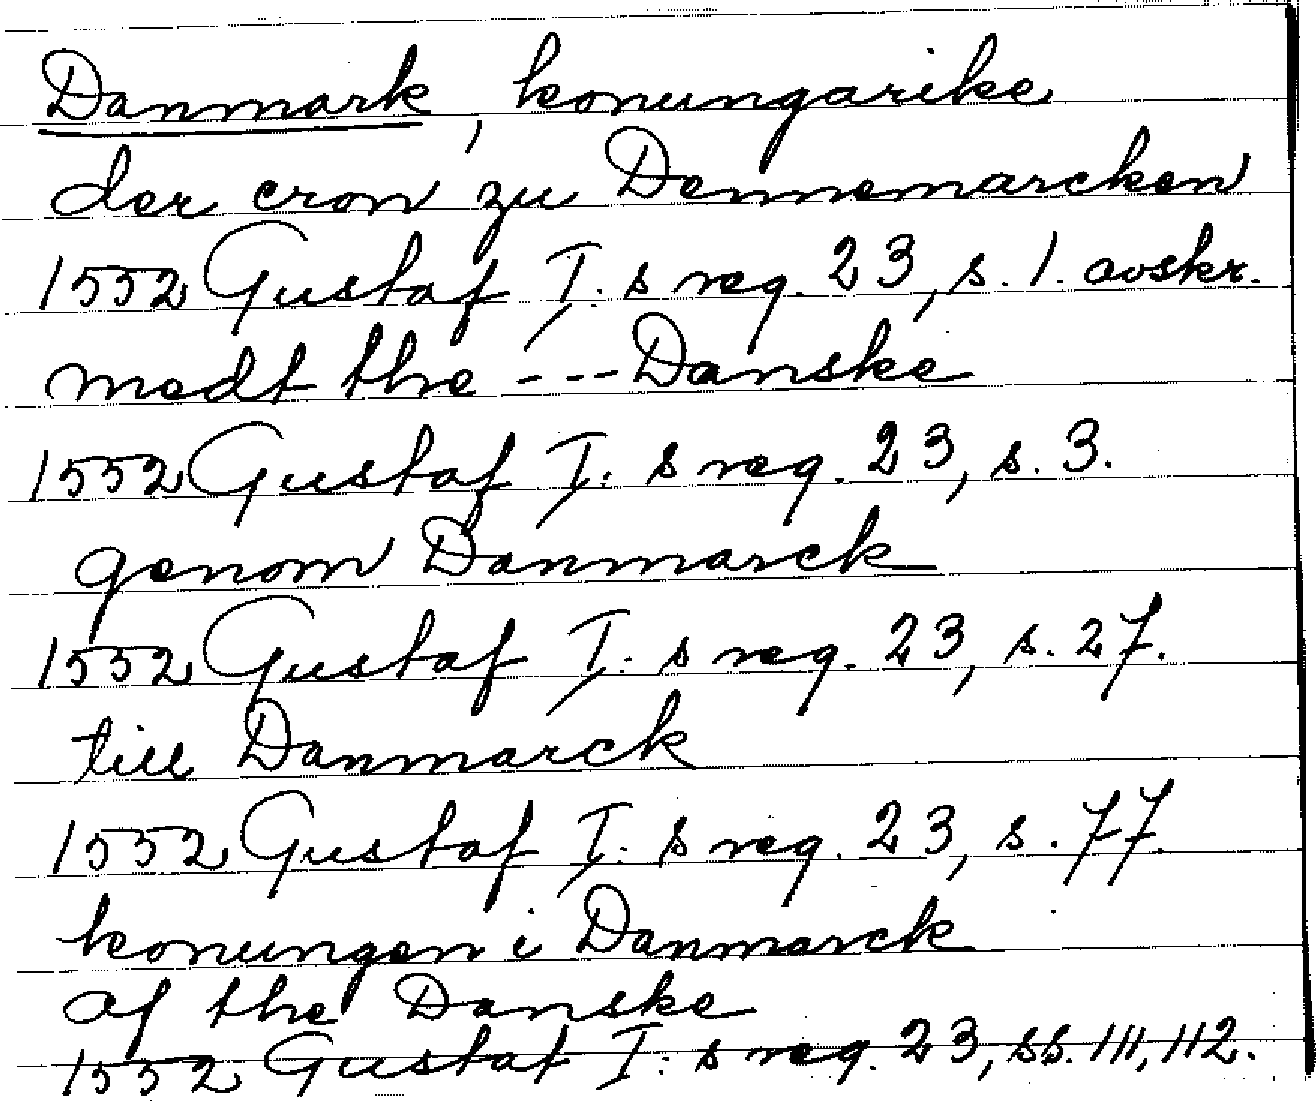 Danmark, konungarike
der cron zu Dennemarcken
1552 Gustaf I:s reg. 23, s. 1. avskr.
medt the --- Danske
1552 Gustaf I:s reg. 23, s. 3.
genom Danmarck
1552 Gustaf I:s reg. 23, s. 27.
till Danmarck
1552 Gustaf I:s reg. 23, s. 77.
konungen i Danmarck
af the Danske
1552 Gustaf I:s reg. 23, ss. 111, 112.